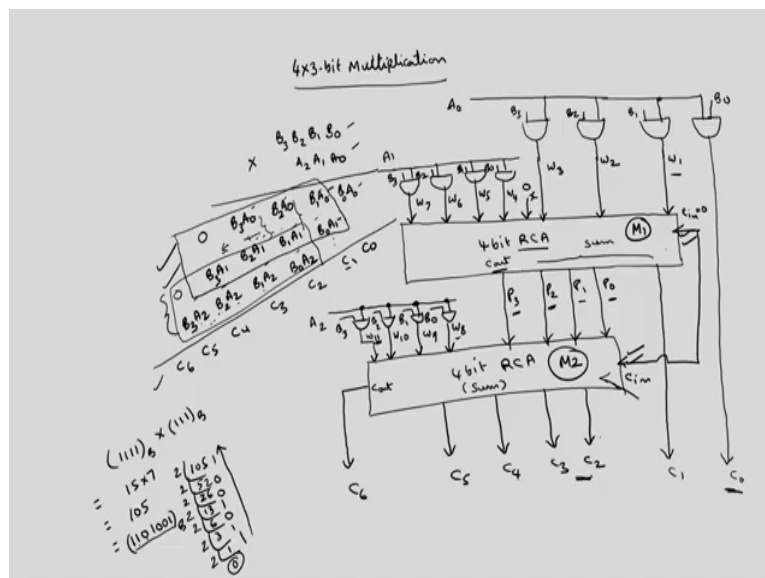 4x3-bit Multiplication
B3 B2 B1 B0
x A2 A1 A0
0 B3A0 B2A0 B1A0 B0A0
0 B3A1 B2A1 B1A1 B0A1
B3A2 B2A2 B1A2 B0A2
C6 C5 C4 C3 C2 C1 C0
A0 B3 B2 B1 B0
W3 W2 W1
A1 B3 B2 B1 B0
W7 W6 W5 W4 0
Cin=0
4 bit RCA sum M1
Cout
P3 P2 P1 P0
A2 B3 B2 B1 B0
W11 W10 W9 W8
4 bit RCA M2
Cout (sum) Cin
C6 C5 C4 C3 C2 C1 C0
(1111)B x (111)B
= 15x7
= 105
= (1101001)B
2 105 1
2 52 0
2 26 0
2 13 1
2 6 0
2 3 1
2 1 1
2 0